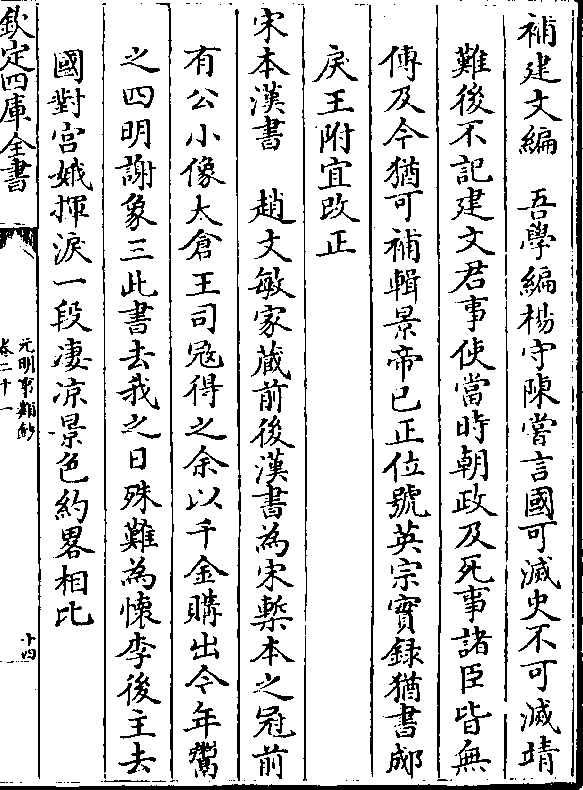 補建文編　吾學編楊守陳嘗言國可滅史不可滅靖
難後不記建文君事使當時朝政及死事諸臣皆無
傳及今猶可補輯景帝已正位號英宗實録猶書郕
戾王附宜改正
宋本漢書　趙文敏家藏前後漢書為宋槧本之冠前
有公小像太倉王司寇得之余以千金購出今年鬻
之四明謝象三此書去我之日殊難為懷李後主去
國對宫娥揮淚一段凄凉景色約畧相比
欽定四庫全書
元明事類鈔
卷二十一
十四